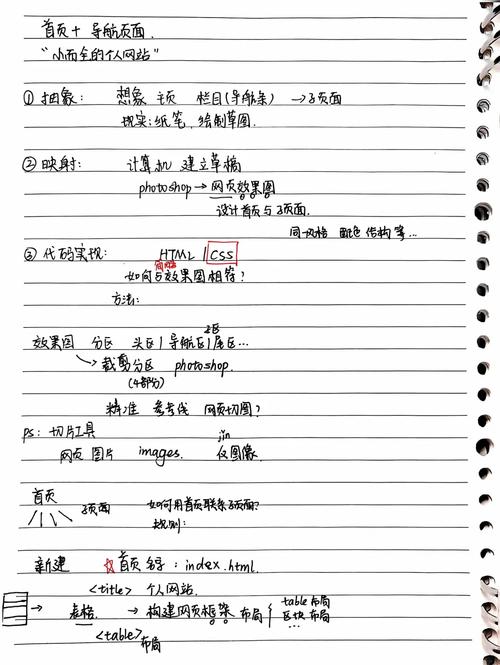 首页+ 导航页面.
"小而全的个人网站"
① 抽象: 想象 主页 栏目(导航条) →子页面
现实:纸笔, 绘制草图.
② 映射: 计算机 建立草稿
photoshop→网页效果图
设计首页与子页面.
同一风格 配色 结构等...
③ 代码实现: HTML / CSS
如何与效果图相符?
方法:
主区
效果图 分区 头区/导航区/尾区...
→裁剪分区 photoshop.
(4部分)
精准 参考线 网页切图?
ps: 切片工具 jin
网页 图片 images. 仅图像.
首页
子页面 如何用首页联系子页面?
规则:
新建 ☆首页名字: index.html.
<title> 个人网站.
→ 表格 → 构建网页框架 布局 { table布局
区块布局
<table>布局 ...